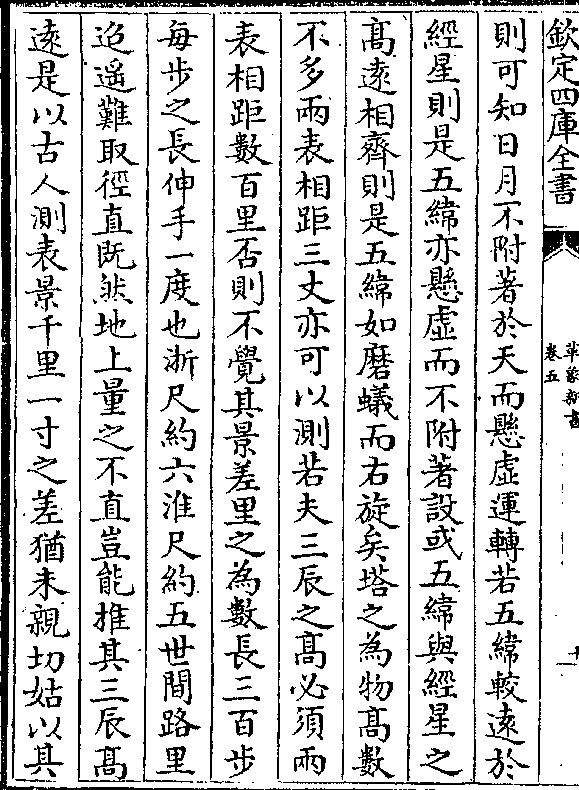 欽定四庫全書
革象新書
卷五
十一
則可知日月不附著於天而懸虛運轉若五緯較遠於
經星則是五緯亦懸虛而不附著設或五緯與經星之
高遠相齊則是五緯如磨蟻而右旋矣塔之為物高數
不多兩表相距三丈亦可以測若夫三辰之高必須兩
表相距數百里否則不覺其景差里之為數長三百步
每步之長伸手一度也浙尺約六淮尺約五世間路里
迢遥難取徑直既然地上量之不直豈能推其三辰高
逺是以古人測表景千里一寸之差猶未親切姑以其